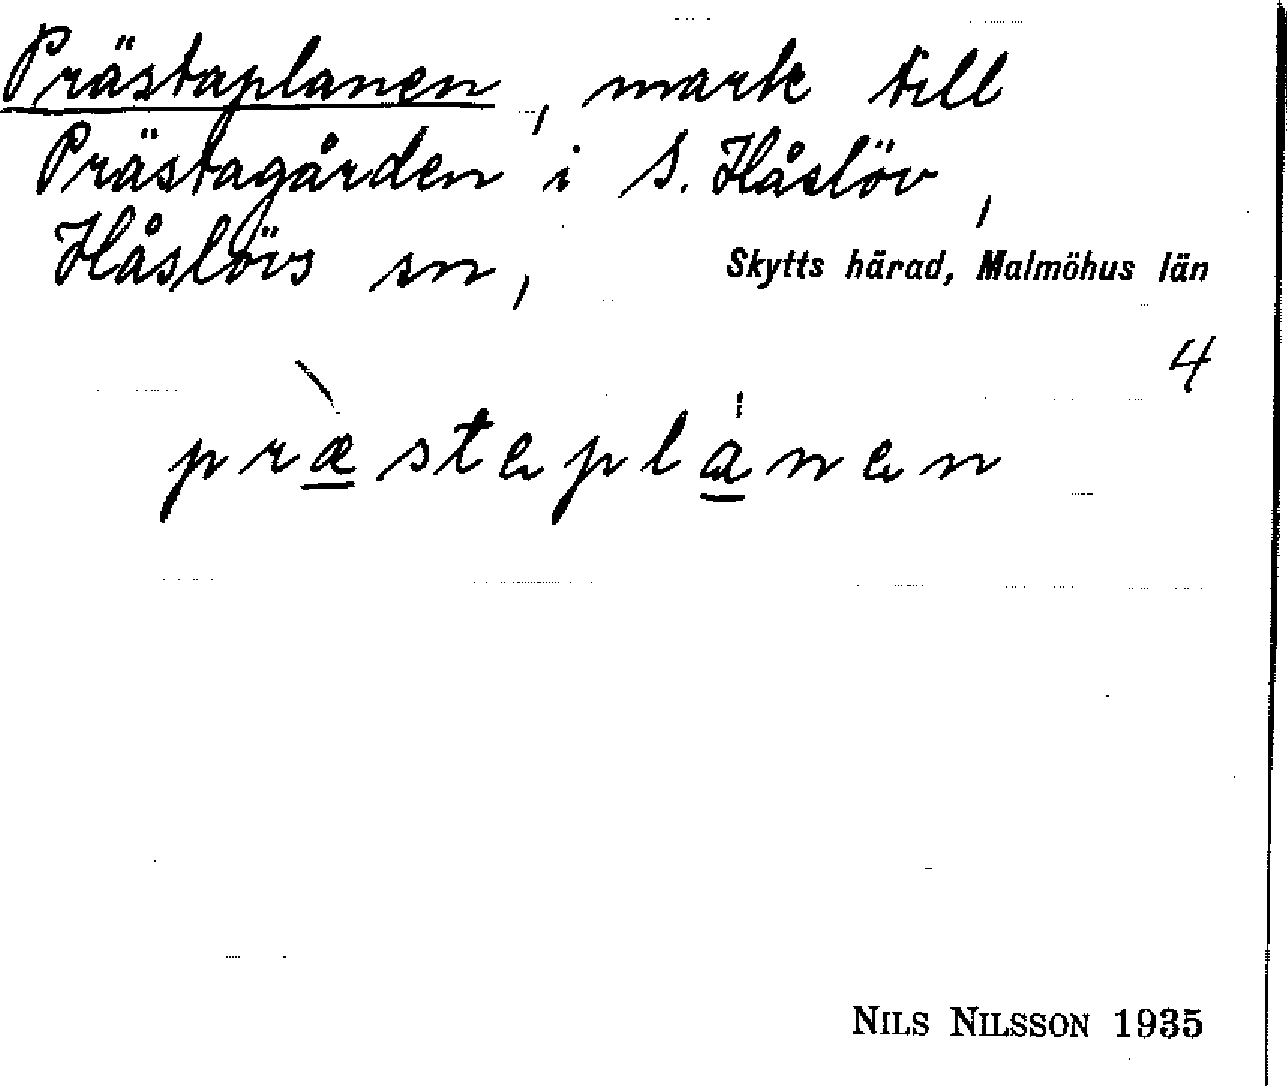 Prästaplanen, mark till
Prästagården i S. Håslöv,
Håslövs sn, Skytts härad, Malmöhus län
4
præ̀stəplánən
NILS NILSSON 1935